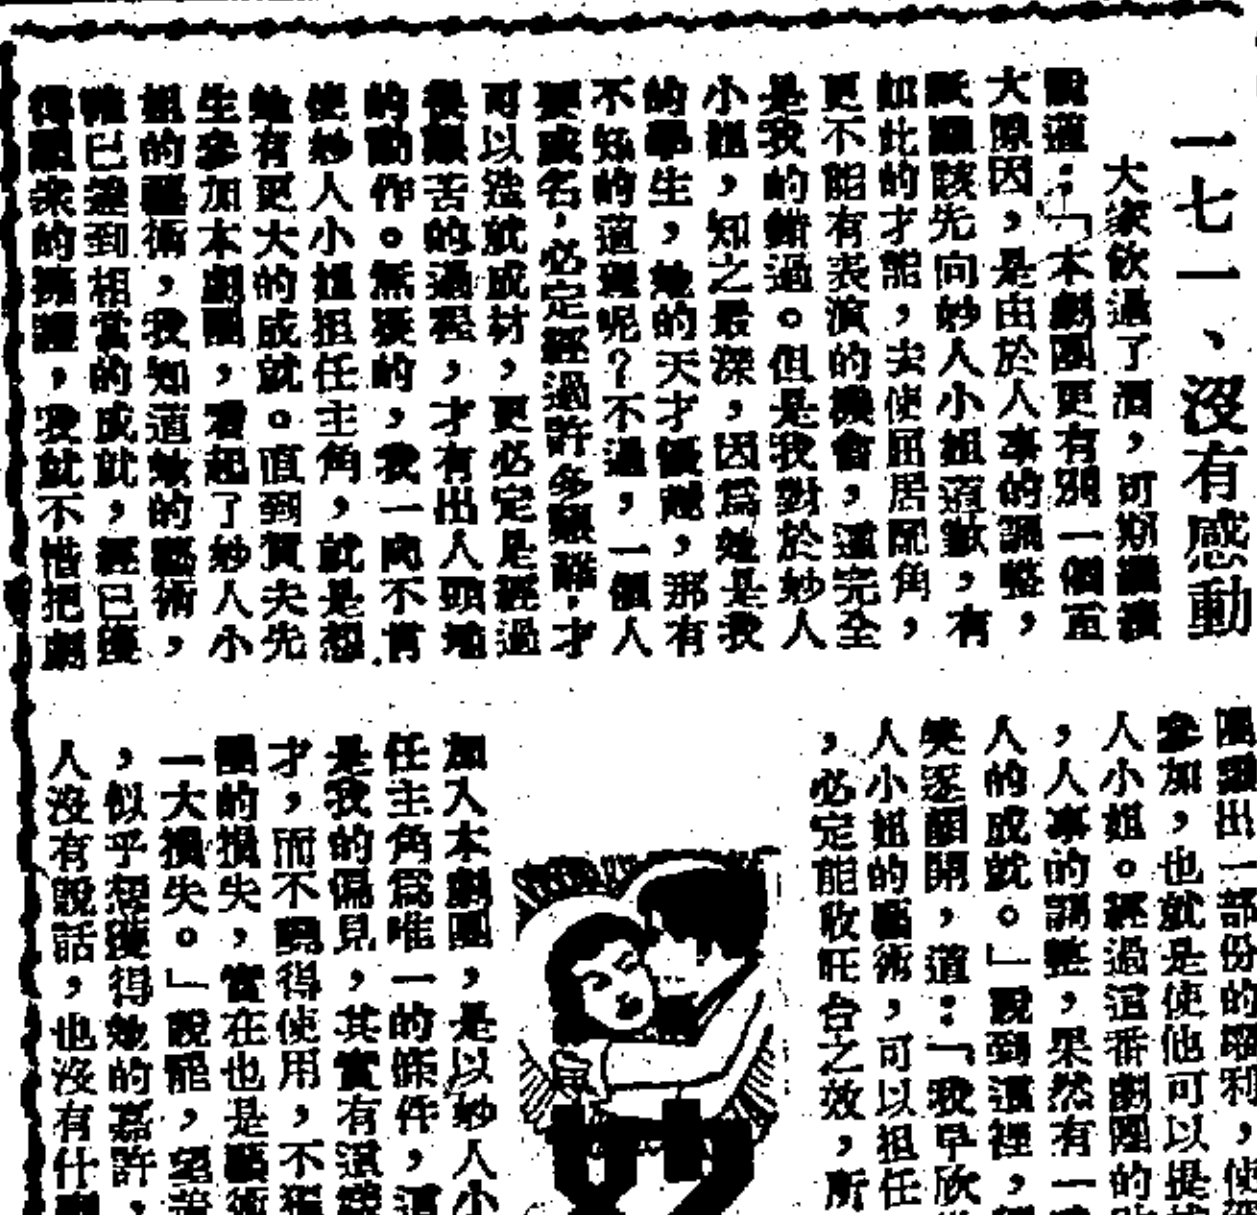 一七一、沒有感動
大家飲過了酒,可期繼續
說道:「本劇團更有別一個重
大原因,是由於人事的調整,
祇應該先向妙人小姐道歉,有
如此的才能,使屈居配角,
更不能有表演的機會,這完全
是我的錯過。但是我對於妙人
小姐,知之最深,因爲她是我
的學生,她的天才優越,那有
不知的道理呢?不過,一個人
要成名,必定經過許多艱難,才
可以造就成材,更必定是經過
很艱苦的過程,才有出人頭地
的動作。無疑的,我一向不肯
使妙人小姐担任主角,就是想
她有更大的成就。直到賀夫先
生參加本劇團,看起了妙人小
姐的藝術,我知道她的藝術,
確已達到相當的成就,經已獲
得觀衆的擁護,我就不惜把劇
團讓出一部份的權利,使
參加,也就是使他可以提
人小姐。經過這番劇團的
,人事的調整,果然有一
人的成就。」說到這裡,
笑逐顏開,道:「我早欣
人小姐的藝術,可以担任
,必定能收旺台之效,所
加入本劇團,是以妙人小
任主角爲唯一的條件,這
是我的偏見,其實有這
才,而不曉得使用,不獨
團的損失,實在也是藝術
一大損失。」說罷,望
,似乎想獲得她的嘉許,
人沒有說話,也沒有什